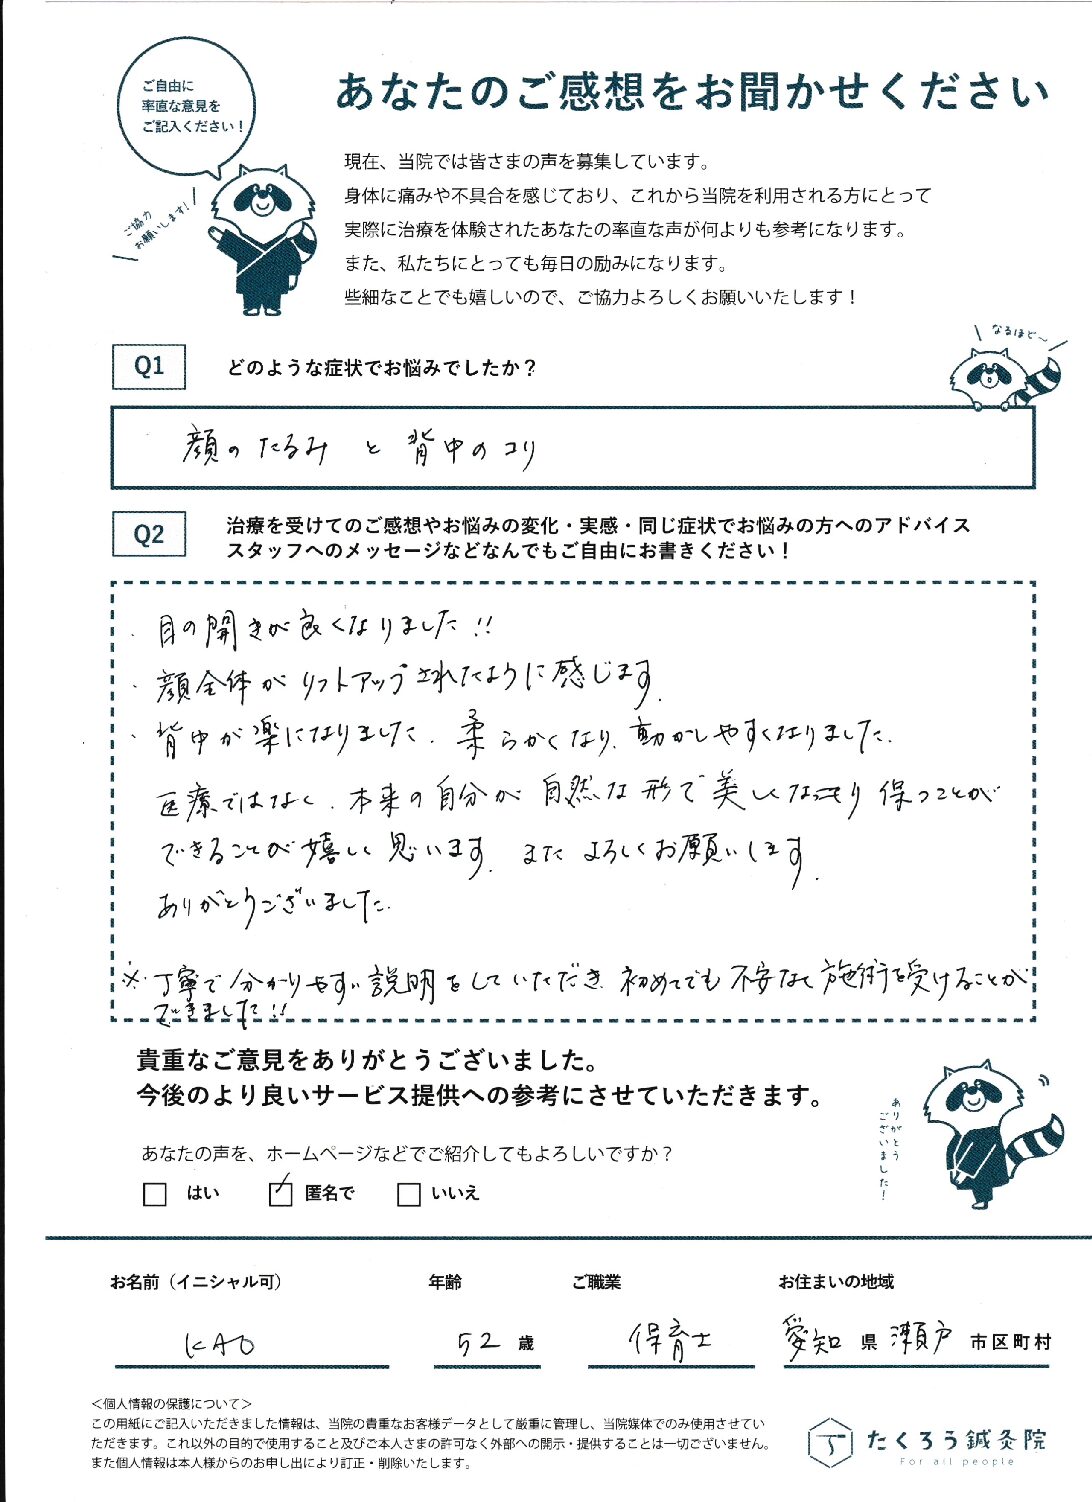 ご自由に
率直な意見を
ご記入ください！
あなたのご感想をお聞かせください
現在、当院では皆さまの声を募集しています。
身体に痛みや不具合を感じており、これから当院を利用される方にとって
実際に治療を体験されたあなたの率直な声が何よりも参考になります。
また、私たちにとっても毎日の励みになります。
些細なことでも嬉しいので、ご協力よろしくお願いいたします！
ご協力
お願いします！
Q1 どのような症状でお悩みでしたか？
なるほど〜
顔のたるみ と 背中のコリ
Q2 治療を受けてのご感想やお悩みの変化・実感・同じ症状でお悩みの方へのアドバイス
スタッフへのメッセージなどなんでもご自由にお書きください！
・目の開きが良くなりました!!
・顔全体がリフトアップされたように感じます.
・背中が楽になりました. 柔らかくなり、動かしやすくなりました.
医療ではなく、本来の自分が自然な形で美しくなったり保つことが
できることが嬉しく思います. またよろしくお願いします.
ありがとうございました.
※丁寧で分かりやすい説明をしていただき 初めてでも不安なく施術を受けることが
できました!!
貴重なご意見をありがとうございました。
今後のより良いサービス提供への参考にさせていただきます。
ありがとう
ございました！
あなたの声を、ホームページなどでご紹介してもよろしいですか？
はい 匿名で いいえ
お名前（イニシャル可） 年齢 ご職業 お住まいの地域
KAO 52 歳 保育士 愛知 県 瀬戸 市区町村
＜個人情報の保護について＞
この用紙にご記入いただきました情報は、当院の貴重なお客様データとして厳重に管理し、当院媒体でのみ使用させてい
ただきます。これ以外の目的で使用すること及びご本人さまの許可なく外部への開示・提供することは一切ございません。
また個人情報は本人様からのお申し出により訂正・削除いたします。
たくろう鍼灸院
For all people